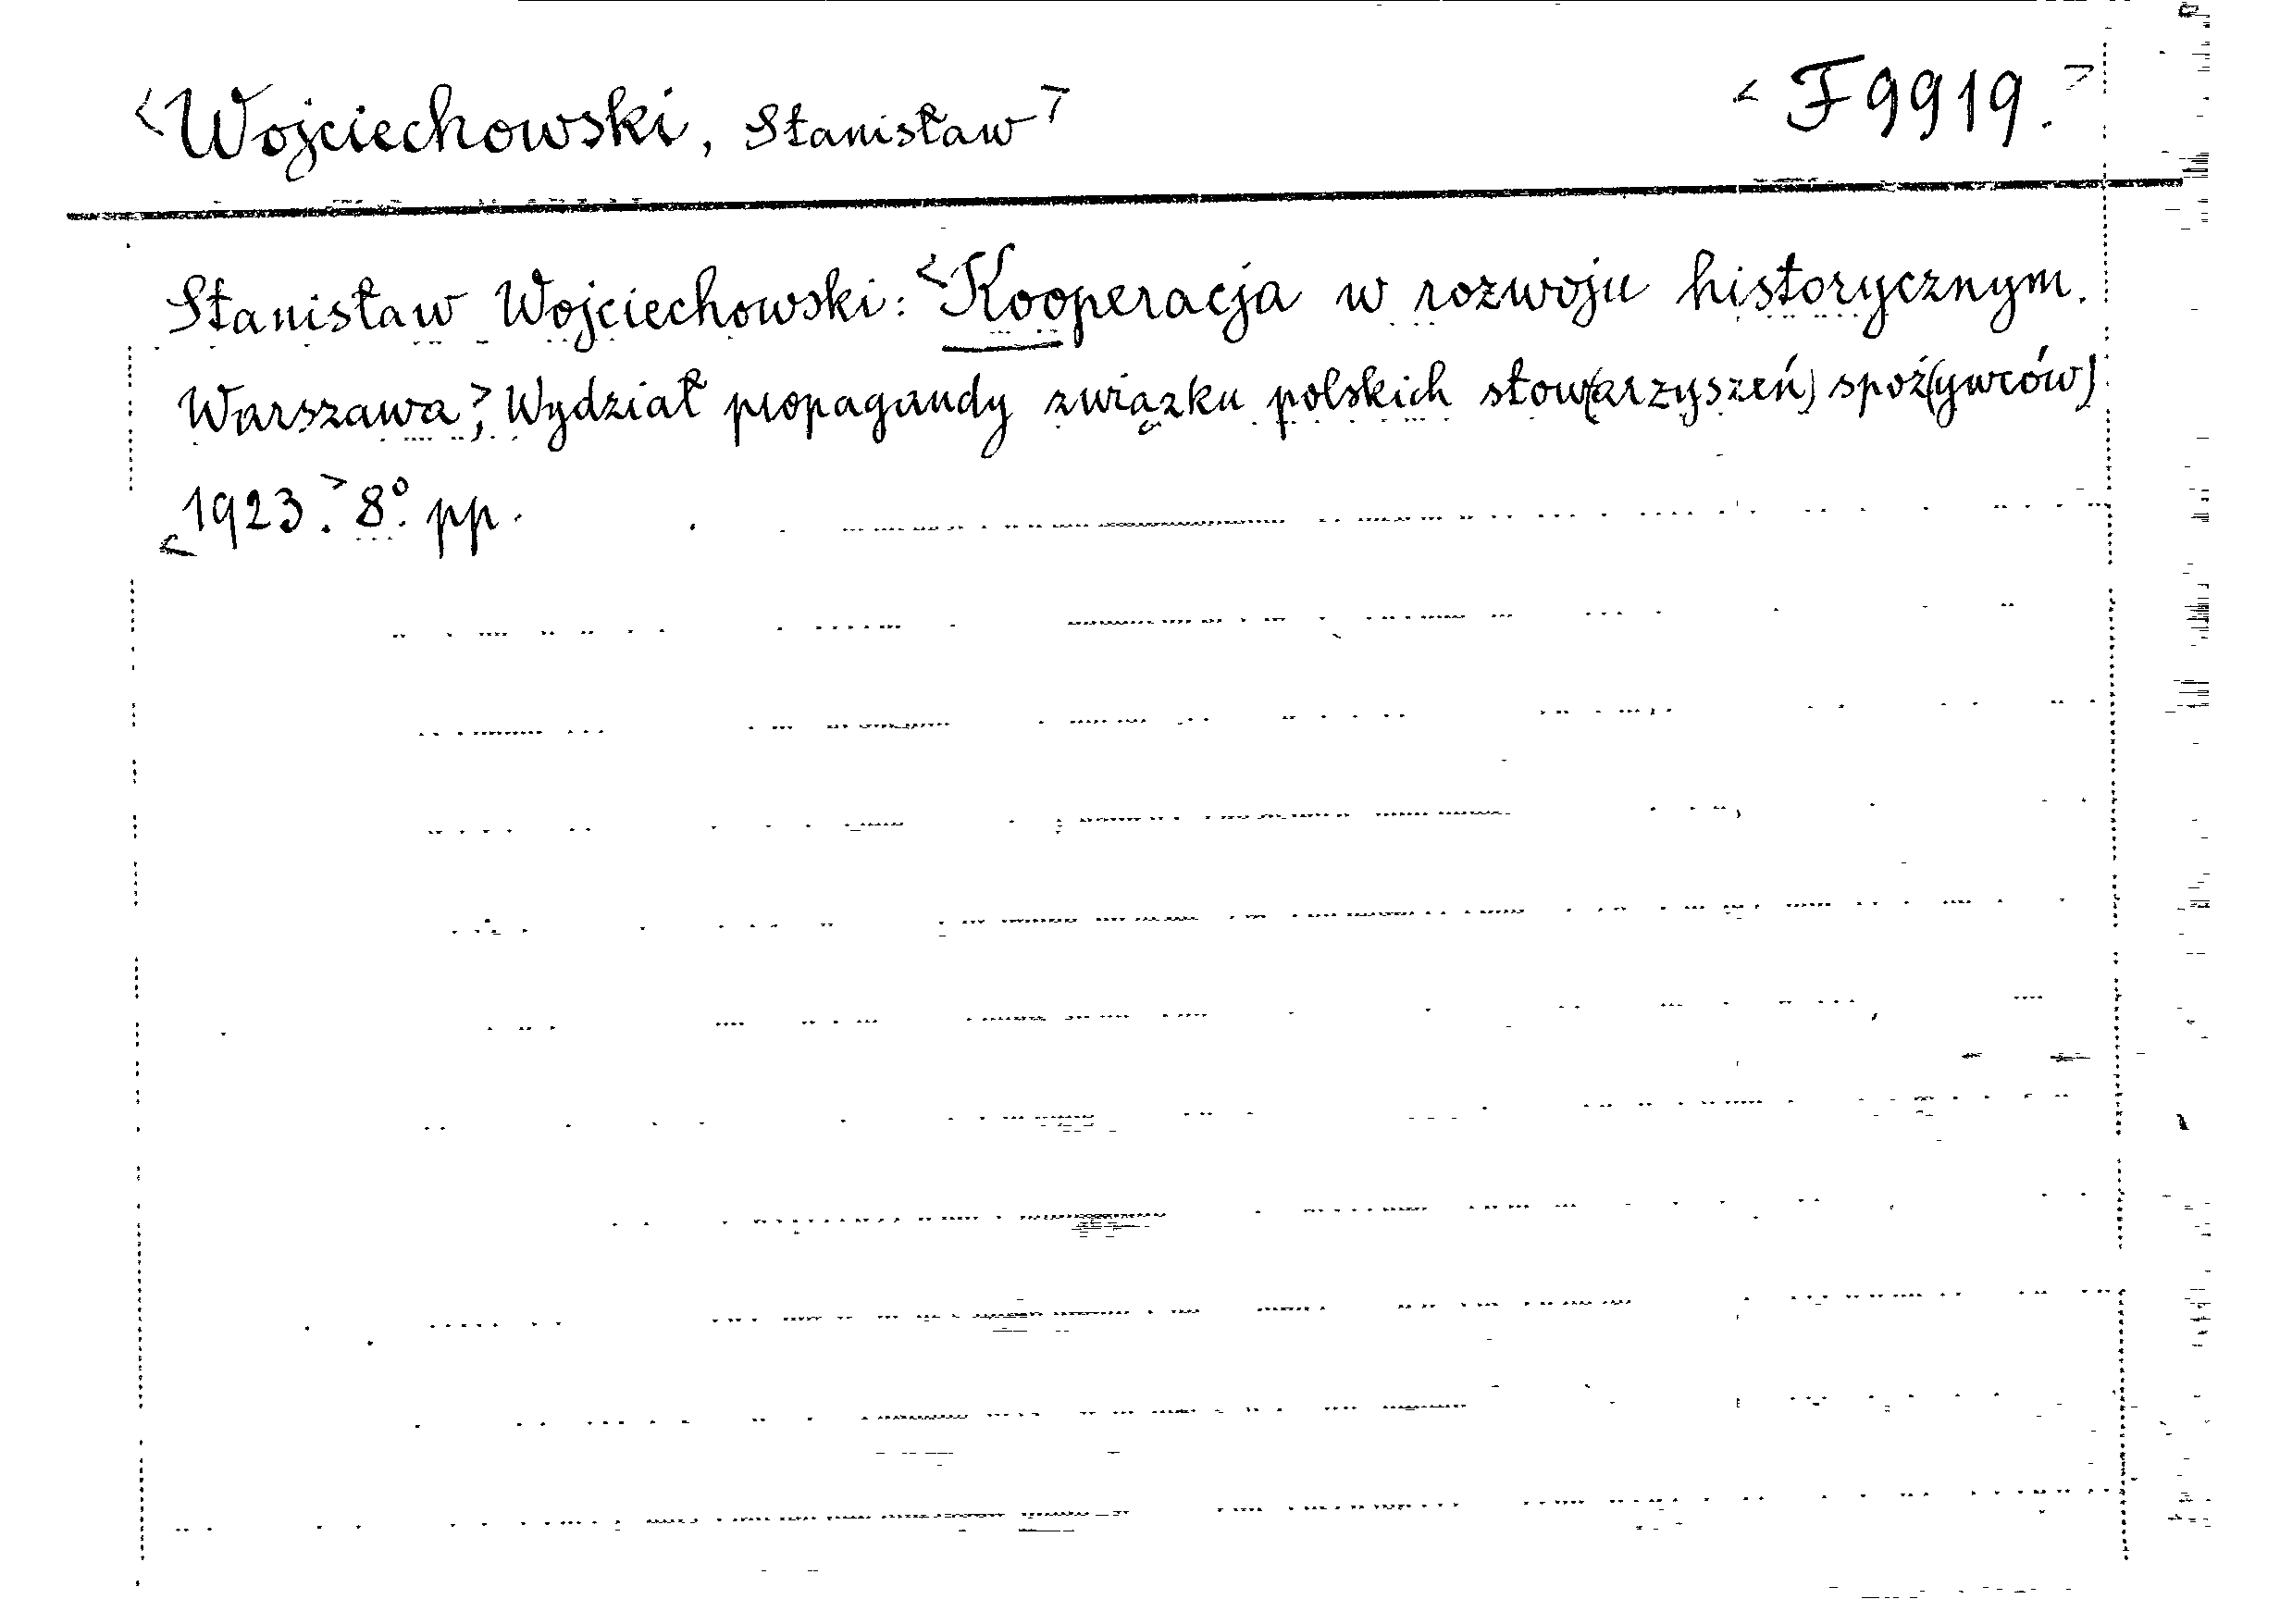 <Wojciechowski, Stanisław> <F9919.>
Stanisław Wojciechowski: <Kooperacja w rozwoju historycznym.
Warszawa>, Wydział propagandy związku polskich stow(arzyszeń) spoż(ywców)
<1923.> 8º. pp.